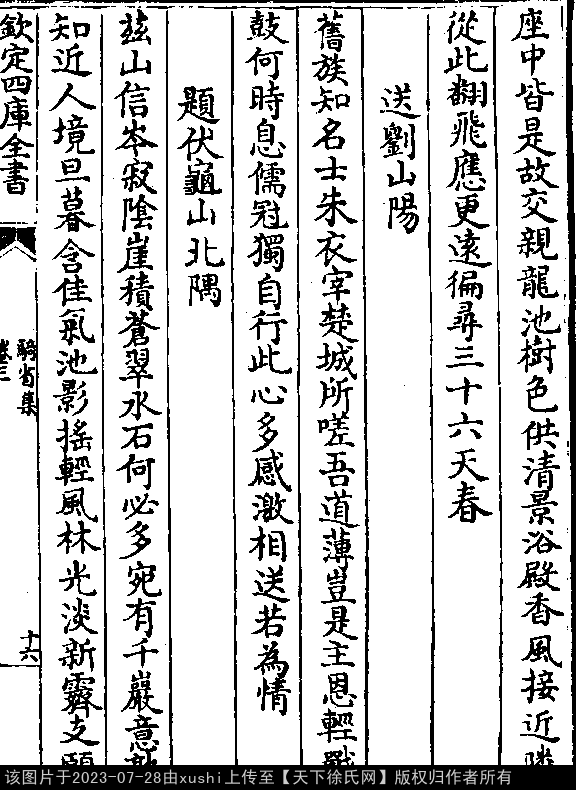 座中皆是故交親龍池樹色供清景浴殿香風接近隣
從此翻飛應更遠徧尋三十六天春
送劉山陽
舊族知名士朱衣宰楚城所嗟吾道薄豈是主恩輕戰
鼓何時息儒冠獨自行此心多感激相送若為情
題伏龜山北隅
茲山信岑寂陰崖積蒼翠水石何必多宛有千巖意孰
知近人境旦暮含佳氣池影搖輕風林光淡新霽支願
欽定四庫全書
騎省集
卷三
十六
该图片于2023-07-28由xushi上传至【天下徐氏网】版权归作者所有